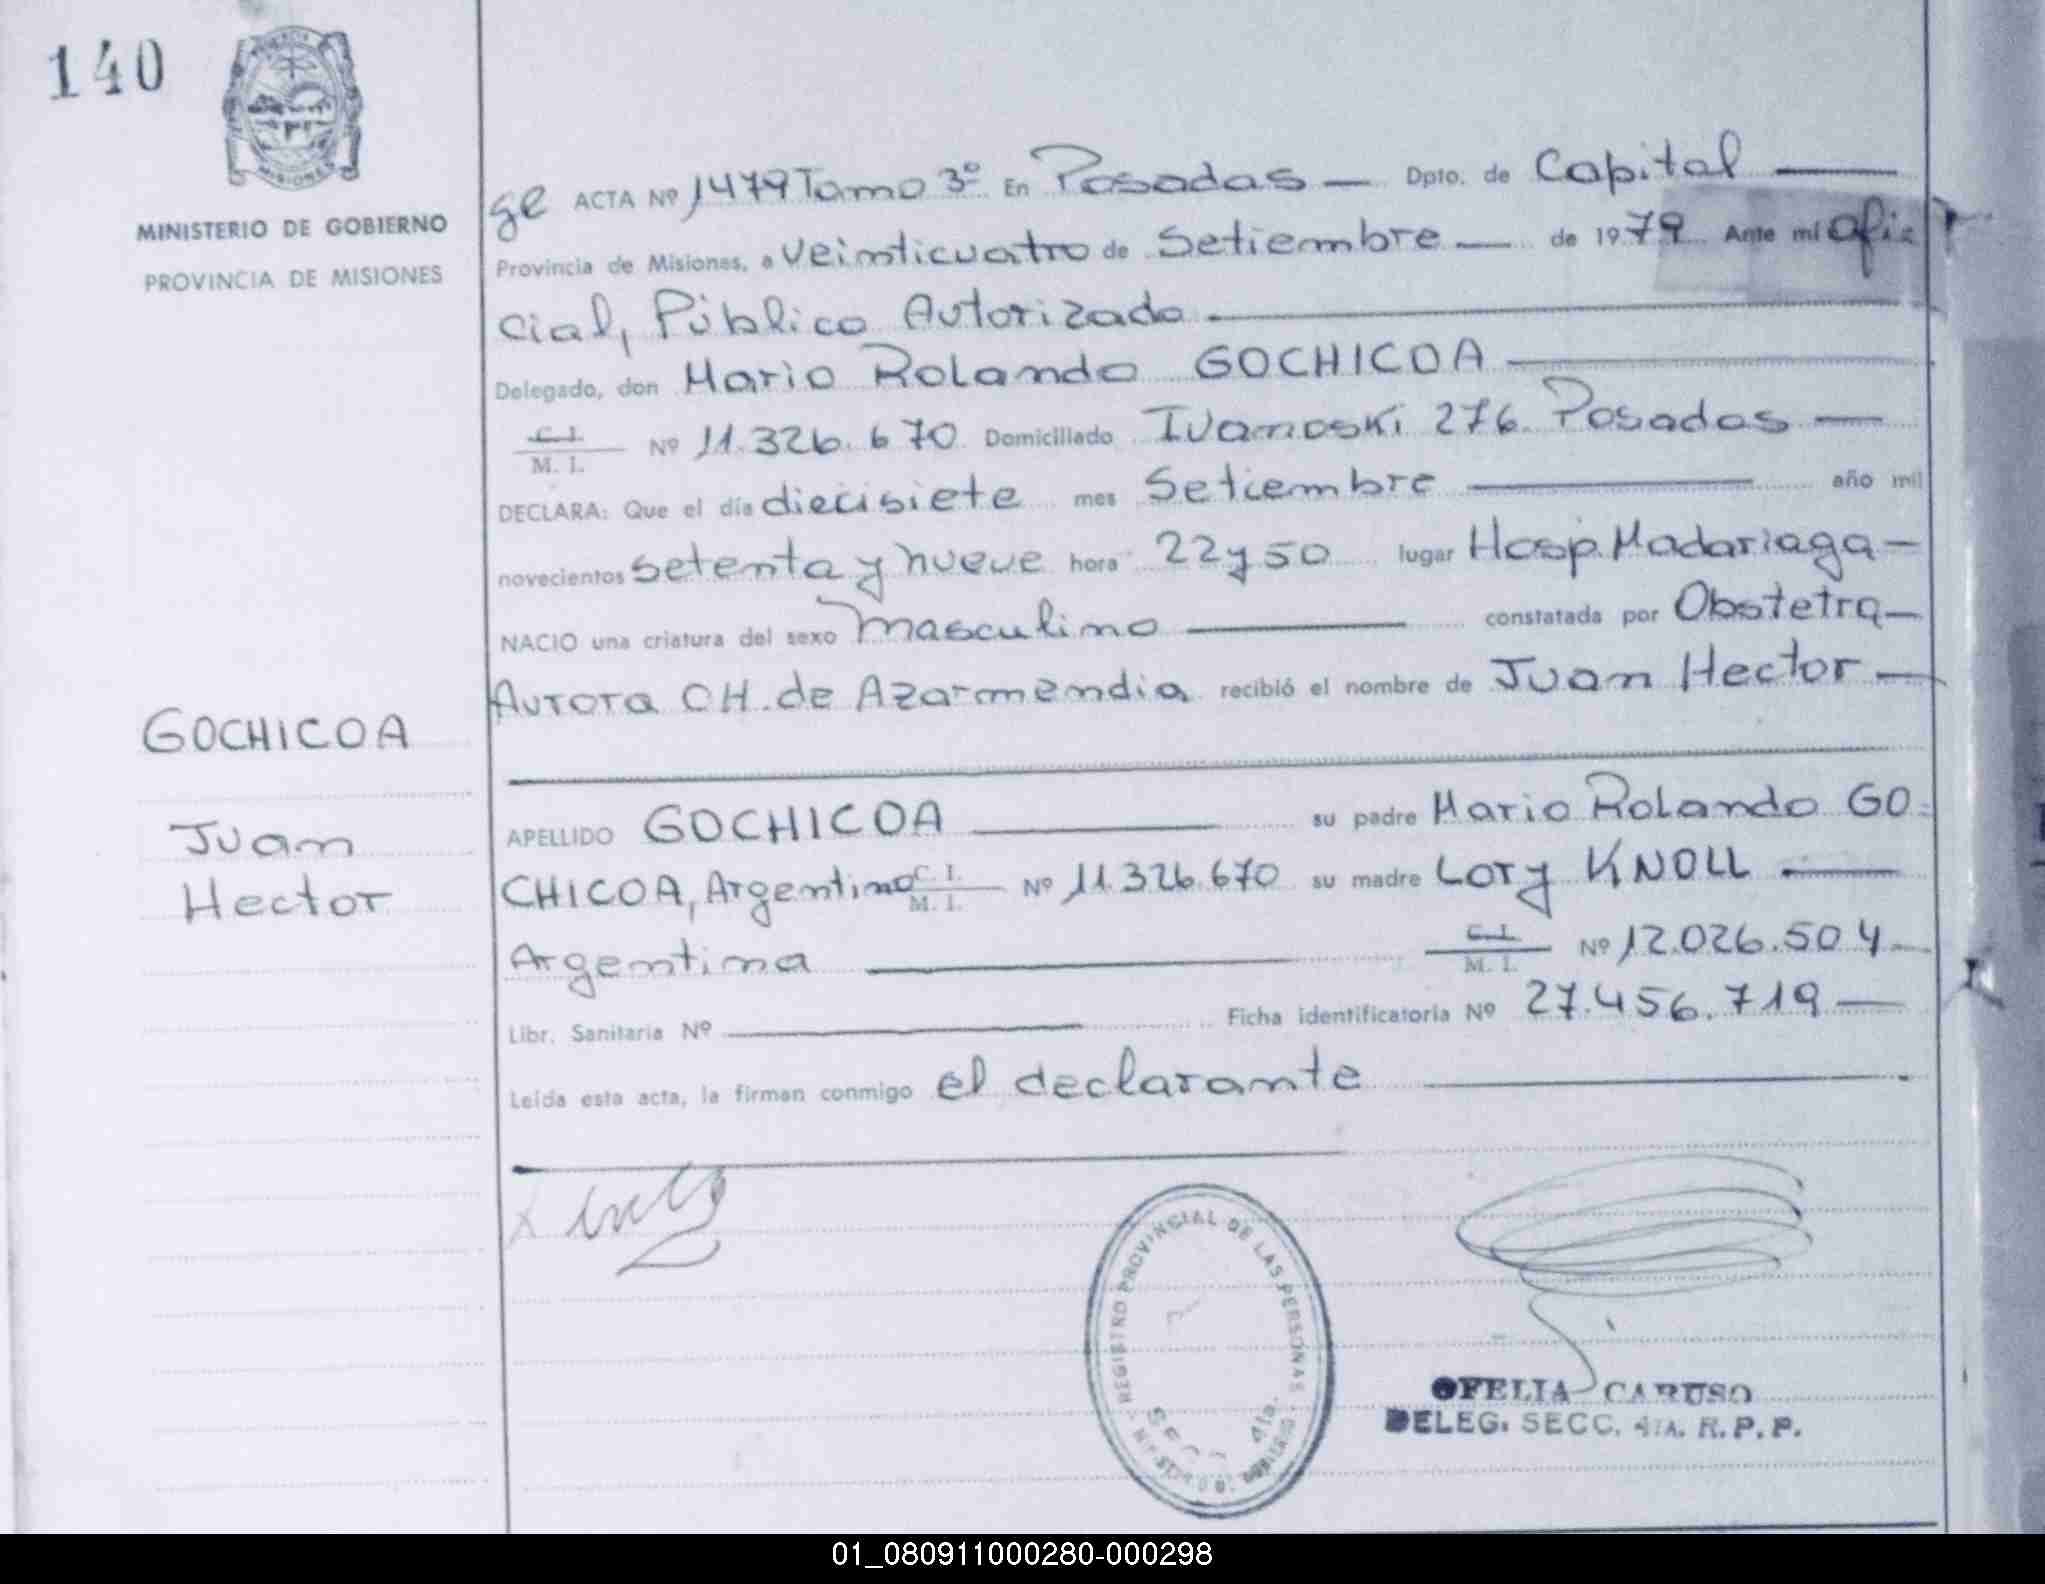 140
MISIONES
MINISTERIO DE GOBIERNO
PROVINCIA DE MISIONES
GOCHICOA
Juan
Hector
ge ACTA Nº 1479 Tomo 3º En Posadas — Dpto. de Capital —
Provincia de Misiones, a veinticuatro de Setiembre — de 1979 Ante mí Ofi=
cial, Público Autorizado —
Delegado, don Mario Rolando GOCHICOA —
C. I.
M. I. Nº 11.326.670 Domiciliado Ivanoski 276. Posadas —
DECLARA: Que el día diecisiete mes Setiembre — año mil
novecientos setenta y nueve hora 22 y 50 lugar Hosp. Madariaga —
NACIO una criatura del sexo Masculino — constatada por Obstetra —
Aurora CH. de Azarmendia recibió el nombre de Juan Hector —
APELLIDO GOCHICOA — su padre Mario Rolando GO=
CHICOA, Argentino C. I.
M. I. Nº 11.326.670 su madre Lory KNOLL —
Argentina — C. I.
M. I. Nº 12.026.504
Libr. Sanitaria Nº — Ficha identificatoria Nº 27.456.719 —
Leída esta acta, la firman conmigo el declarante —
REGISTRO PROVINCIAL DE LAS PERSONAS
SECC. 4ta.
OFELIA CARUSO
DELEG. SECC. 4TA. R. P. P.
01_080911000280-000298